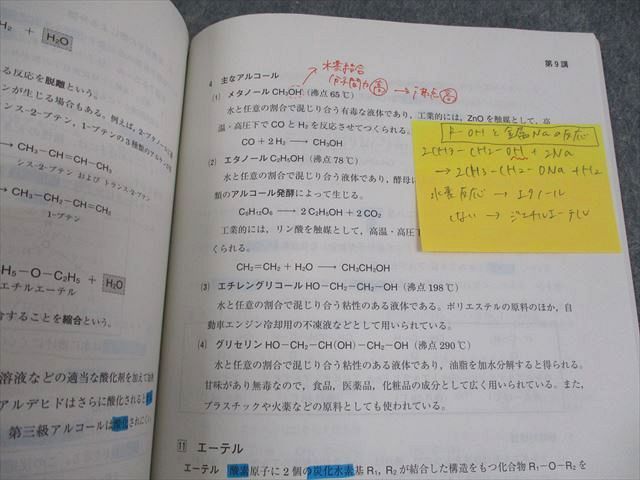 H₂ + H₂O
る反応を脱離という。
ンが生じる場合もある。例えば，2-ブタノールに
ンス-2-ブテン，1-ブテンの3種類のアルケンが
CH₃－CH＝CH－CH₃
シス-2-ブテン および トランス-2-ブテン
CH₃－CH₂－CH＝CH₂
1-ブテン
H₅－O－C₂H₅ + H₂O
エチルエーテル
合することを縮合という。
溶液などの適当な酸化剤を加えて
アルデヒドはさらに酸化されると
第三級アルコールは酸化されにくい
第9講
水素結合
分子間力 高 → 沸点 高
4 主なアルコール
(1) メタノール CH₃OH (沸点 65℃)
水と任意の割合で混じり合う有毒な液体であり，工業的には，ZnO を触媒として，高
温・高圧下で CO と H₂ を反応させてつくられる。
CO + 2 H₂ ―→ CH₃OH
(2) エタノール C₂H₅OH (沸点 78℃)
水と任意の割合で混じり合う液体であり，酵母に
類のアルコール発酵によって生じる。
C₆H₁₂O₆ ―→ 2 C₂H₅OH + 2 CO₂
工業的には，リン酸を触媒として，高温・高圧下
くられる。
CH₂＝CH₂ + H₂O ―→ CH₃CH₂OH
-OHと金属Naの反応
2CH3-CH2-OH + 2Na
→ 2CH3-CH2-ONa + H2
水素反応 → エタノール
しない → ジエチルエーテル
(3) エチレングリコール HO－CH₂－CH₂－OH (沸点 198℃)
水と任意の割合で混じり合う粘性のある液体である。ポリエステルの原料のほか，自
動車エンジン冷却用の不凍液などとして用いられている。
(4) グリセリン HO－CH₂－CH(OH)－CH₂－OH (沸点 290℃)
水と任意の割合で混じり合う粘性のある液体であり，油脂を加水分解すると得られる。
甘味があり無毒なので，食品，医薬品，化粧品の成分として広く用いられている。また，
プラスチックや火薬などの原料としても使われている。
11 エーテル
エーテル 酸素原子に2個の炭化水素基 R₁，R₂ が結合した構造をもつ化合物 R₁－O－R₂ を